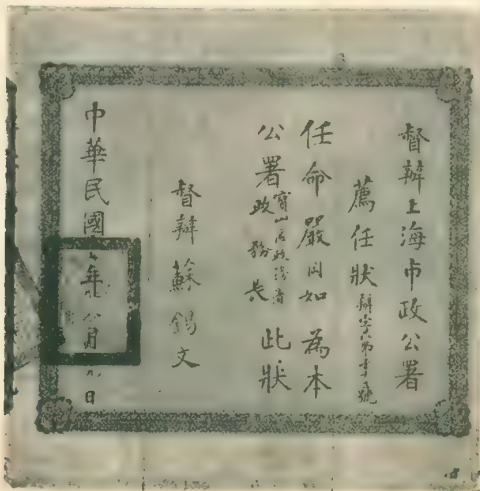 督辦上海市政公署
薦任狀辦字第號
任命嚴如為本
公署寶山區政務署
政務長此狀
督辦蘇錫文
中華民國年月日